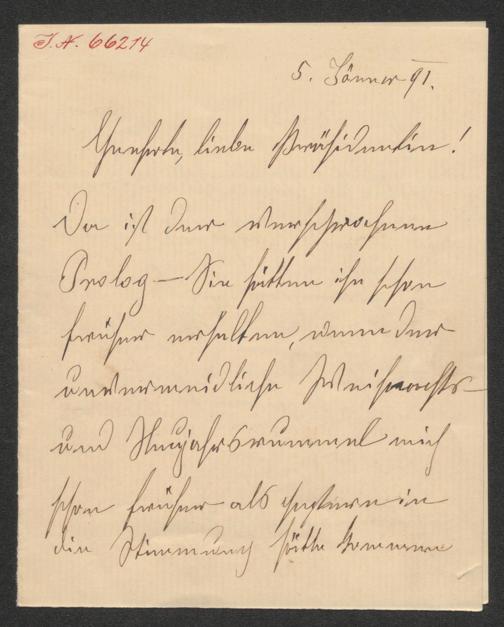 I.N. 66214
5. Jänner 91.
Geehrte, liebe Präsidentin!
Da ist der versprochene
Prolog — Sie hätten ihn schon
früher erhalten, wenn der
unvermeidliche Weihnachts-
und Neujahrsrummel mich
schon früher als gestern in
die Stimmung hätte kommen